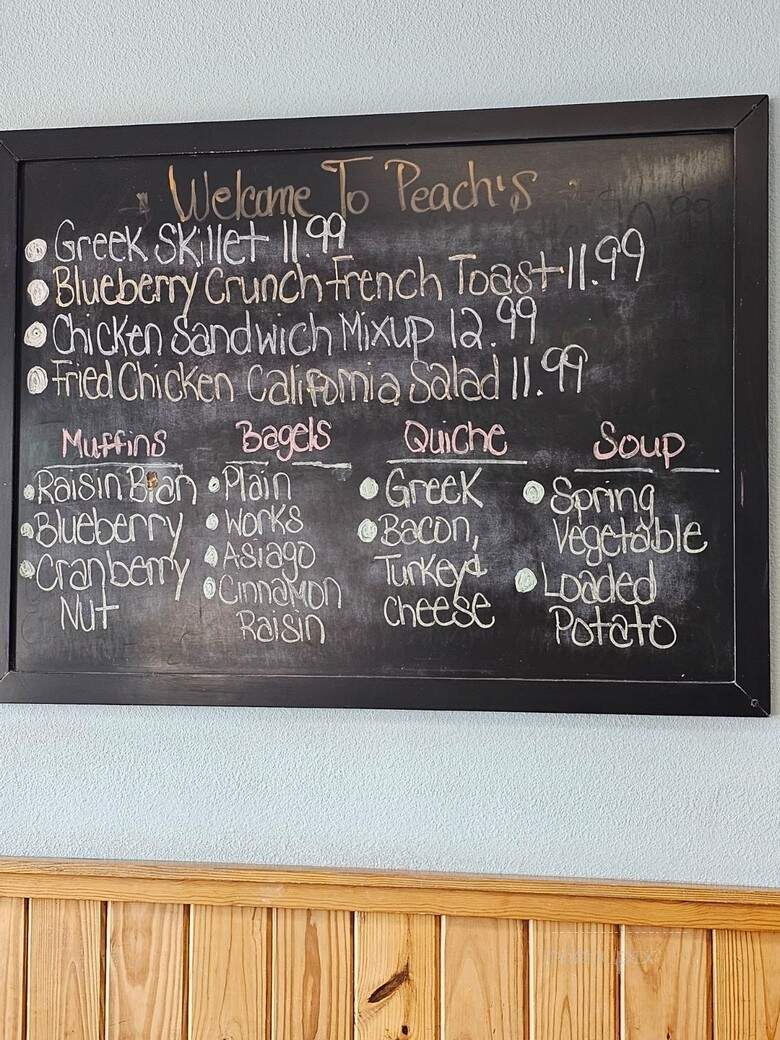 Welcome To Peach's
Greek Skillet 11.99
Blueberry Crunch French Toast 11.99
Chicken Sandwich Mixup 12.99
Fried Chicken California Salad 11.99
Muffins
Raisin Bran
Blueberry
Cranberry
Nut
Bagels
Plain
Works
Asiago
Cinnamon
Raisin
Quiche
Greek
Bacon,
Turkey &
Cheese
Soup
Spring
Vegetable
Loaded
Potato